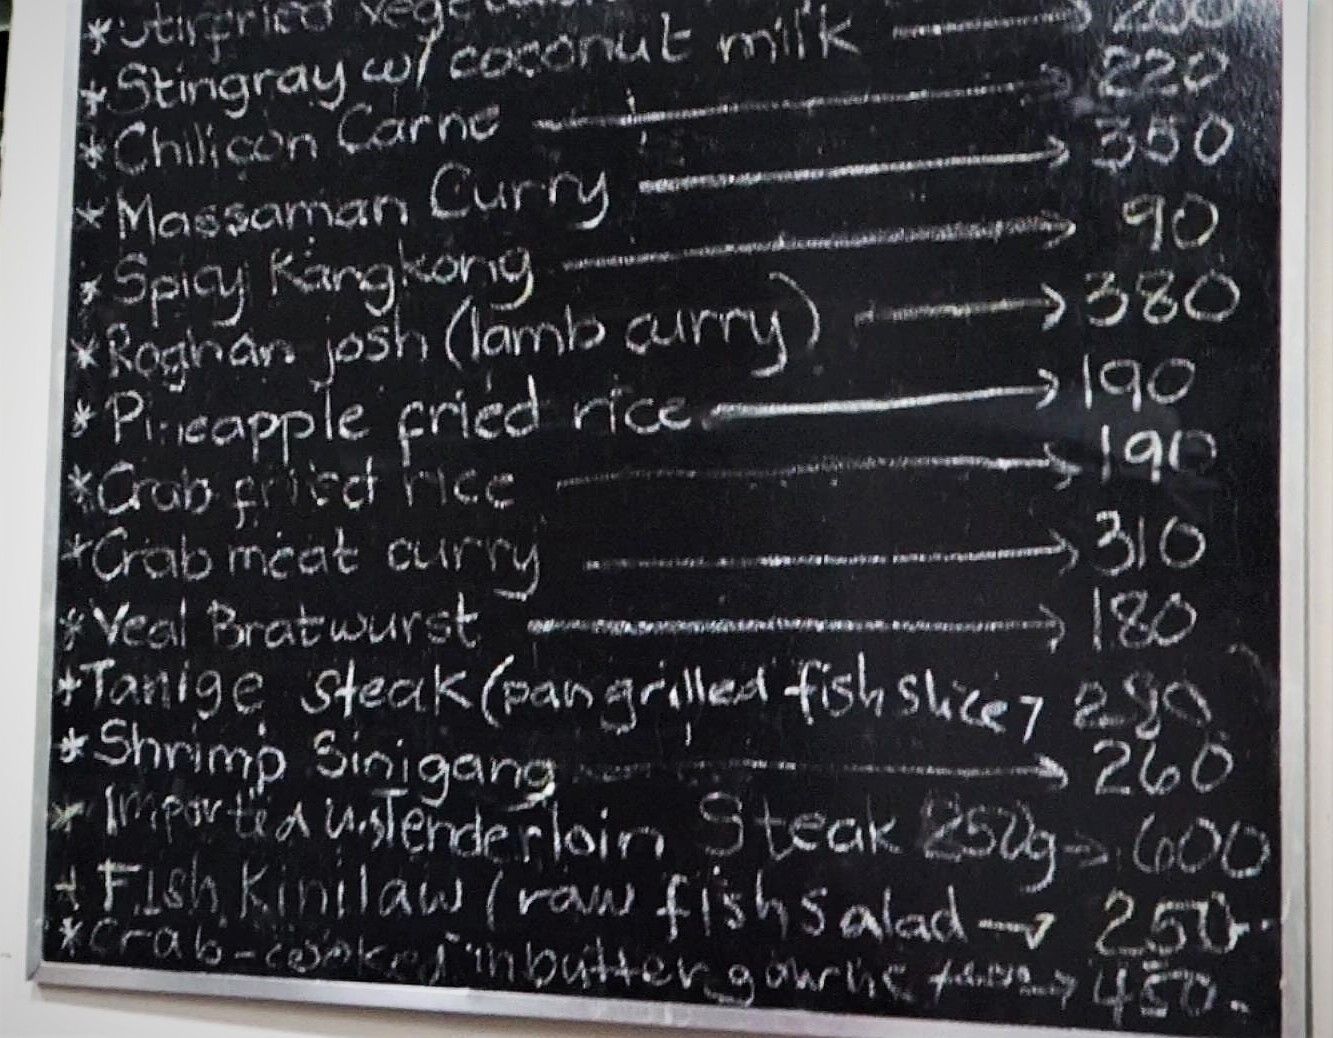 *Stirfried
*Stingray w/ coconut milk → 200
*Chili con Carne → 220
*Massaman Curry → 350
*Spicy Kangkong → 90
*Roghan josh (lamb curry) → 380
*Pineapple fried rice → 190
*Crab fried rice → 190
*Crab meat curry → 310
*Veal Bratwurst → 180
*Tanige steak (pan grilled fish slice 7 280
*Shrimp Sinigang → 260
*Imported U.S Tenderloin Steak 250g → 600
*Fish Kinilaw (raw fish salad → 250.
*Crab-cooked in butter → 450.